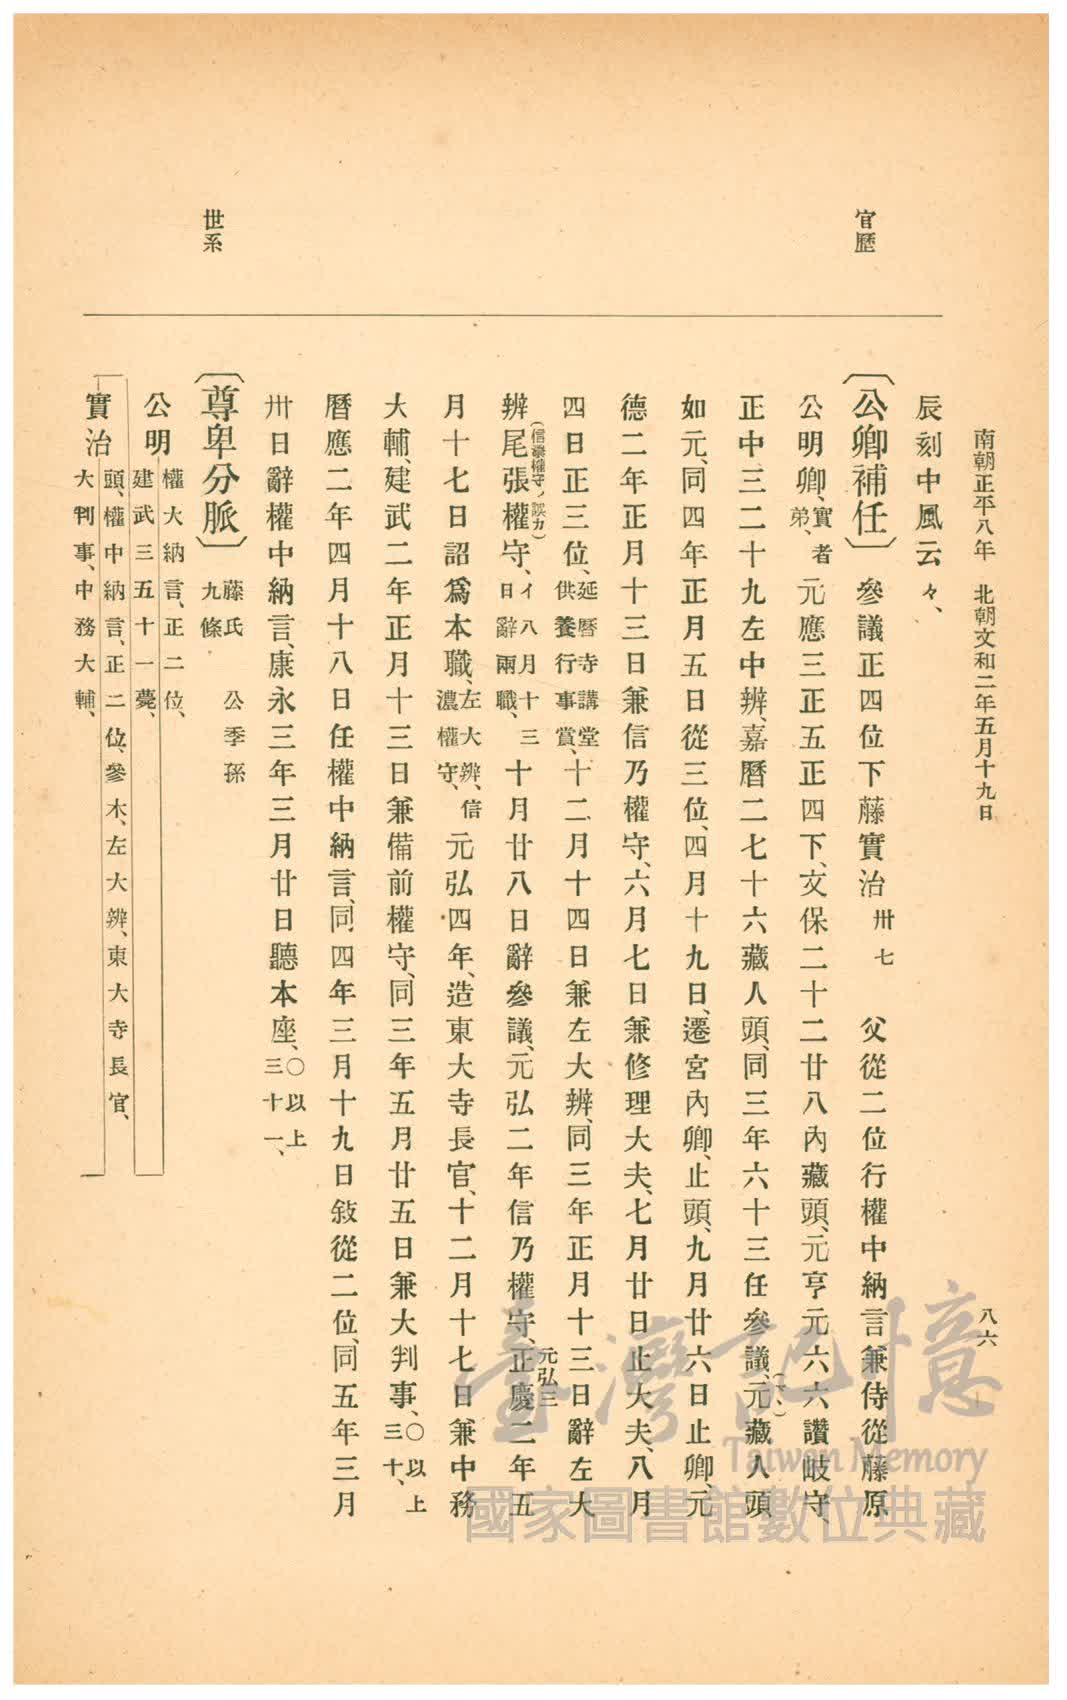 南朝正平八年 北朝文和二年五月十九日
八六
官歷
世系
辰刻中風云々、
〔公卿補任〕 參議正四位下藤實治 卅七 父從二位行權中納言兼侍從藤原
公明卿、實者弟、元應三正五正四下、文保二十二廿八內藏頭、元亨元六六讚岐守、
正中三二十九左中辨、嘉曆二七十六藏人頭、同三年六十三任參議、元藏人頭
如元、同四年正月五日從三位、四月十九日、遷宮內卿、止頭、九月廿六日止卿、元
德二年正月十三日兼信乃權守、六月七日兼修理大夫、七月廿日止大夫、八月
四日正三位、延曆寺講堂供養行事賞、十二月十四日兼左大辨、同三年正月十三日辭左大
辨尾張權守、(信濃權守ノ誤カ)イ八月十三日辭兩職、十月廿八日辭參議、元弘二年信乃權守、正慶二年五元弘三
月十七日詔爲本職、左大辨、信濃權守、元弘四年、造東大寺長官、十二月十七日兼中務
大輔、建武二年正月十三日兼備前權守、同三年五月廿五日兼大判事、〇以上三十、
曆應二年四月十八日任權中納言、同四年三月十九日敍從二位、同五年三月
卅日辭權中納言、康永三年三月廿日聽本座、〇以上三十一、
〔尊卑分脈〕 藤氏九條 公季孫
公明 權大納言、正二位、建武三五十一薨、
實治 頭、權中納言、正二位、參木、左大辨、東大寺長官、大判事、中務大輔、
臺灣記憶
Taiwan Memory
國家圖書館數位典藏